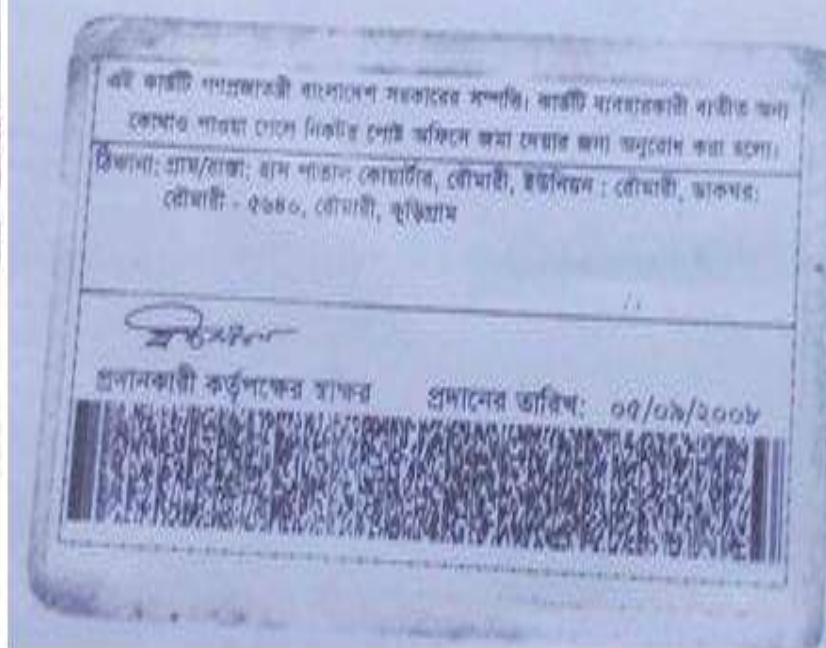 এই কার্ডটি গণপ্রজাতন্ত্রী বাংলাদেশ সরকারের সম্পত্তি। কার্ডটি ব্যবহারকারী ব্যতীত অন্য
কোথাও পাওয়া গেলে নিকটস্থ পোষ্ট অফিসে জমা দেবার জন্য অনুরোধ করা হলো।
ঠিকানা: গ্রাম/রাস্তা: কোয়ার্টার, রৌমারী, ইউনিয়ন : রৌমারী, ডাকঘর:
রৌমারী - ৫৬৪০, রৌমারী, কুড়িগ্রাম
প্রদানকারী কর্তৃপক্ষের স্বাক্ষর প্রদানের তারিখ: /০৯/২০০৮